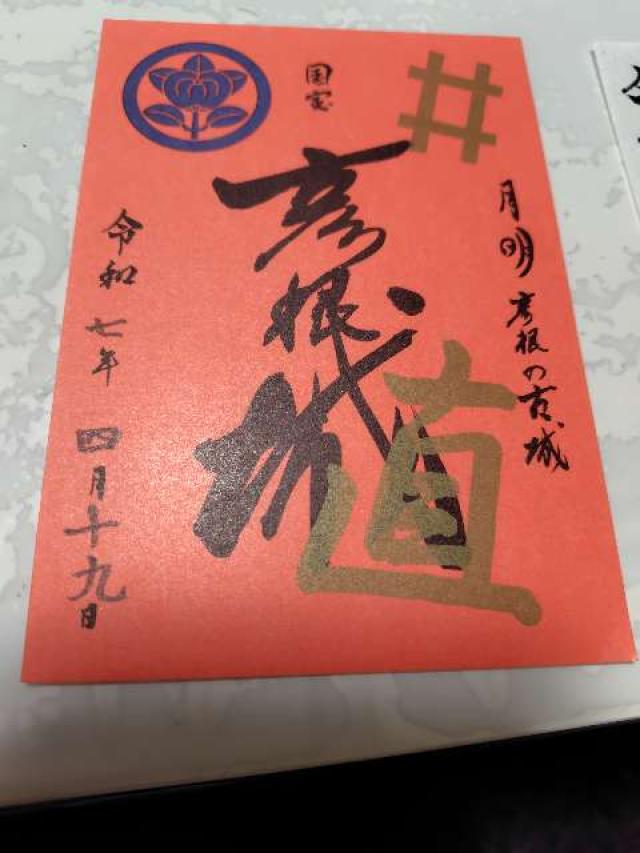 井
月明彦根の古城
国宝
彦根城
直
令和七年 四月十九日